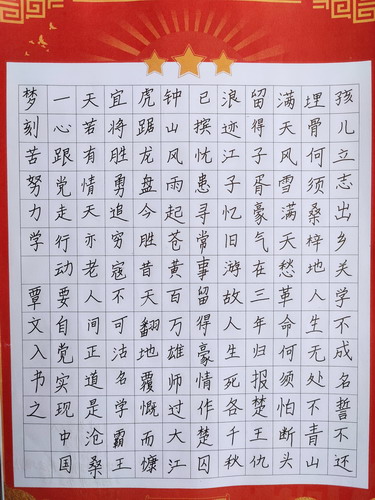 孩儿立志出乡关学不成名誓不还
埋骨何须桑梓地人生无处不青山
满天风雪满天愁革命何须怕断头
留得子胥豪气在三年归报楚王仇
浪迹江子忆旧游故人生死各千秋
已摈忧患寻常事留得豪情作楚囚
钟山风雨起苍黄百万雄师过大江
虎踞龙盘今胜昔天翻地覆慨而慷
宜将胜勇追穷寇不可沽名学霸王
天苦有情天亦老人间正道是沧桑
一心跟党走行动要自党实现中国
梦刻苦努力学 覃文入书之